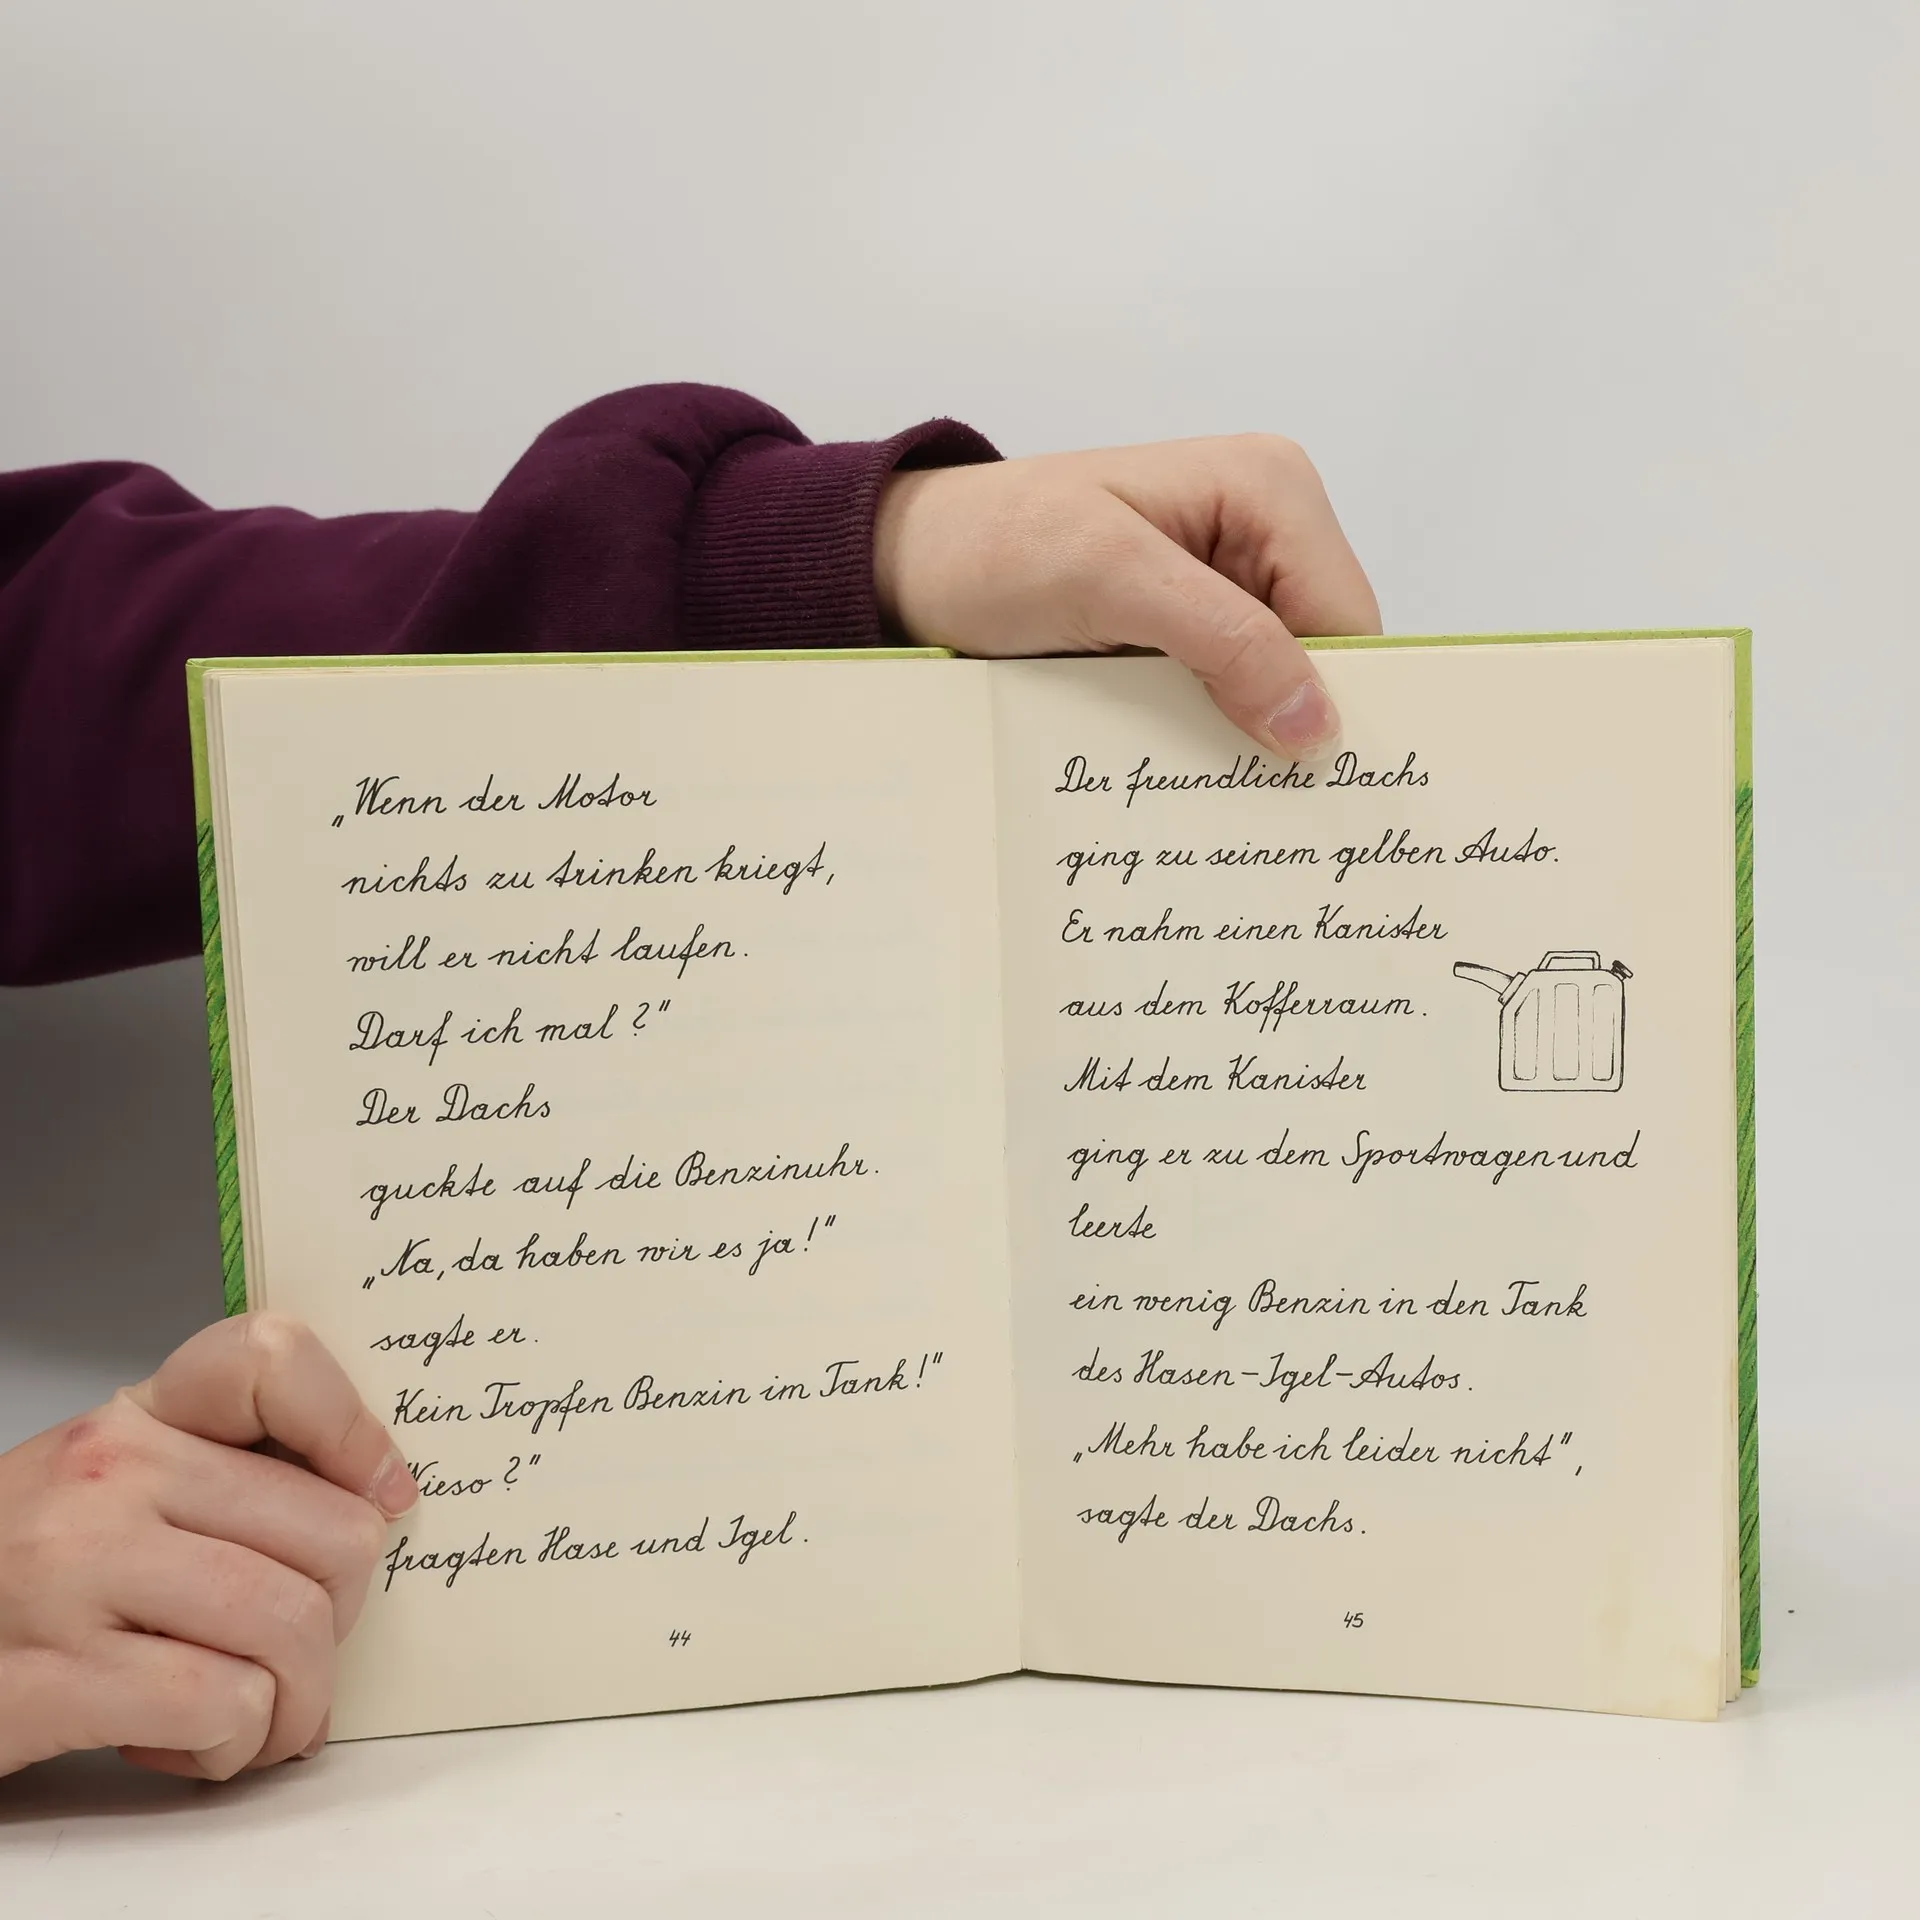 „Wenn der Motor
nichts zu trinken kriegt,
will er nicht laufen.
Darf ich mal?"
Der Dachs
guckte auf die Benzinuhr.
„Na, da haben wir es ja!"
sagte er.
Kein Tropfen Benzin im Tank!"
Wieso?"
fragten Hase und Igel.
44
Der freundliche Dachs
ging zu seinem gelben Auto.
Er nahm einen Kanister
aus dem Kofferraum.
Mit dem Kanister
ging er zu dem Sportwagen und
leerte
ein wenig Benzin in den Tank
des Hasen-Igel-Autos.
„Mehr habe ich leider nicht",
sagte der Dachs.
45